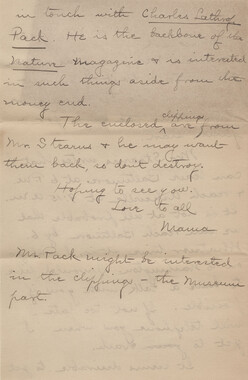 in touch with Charles Lathrop
Pack. He is the backbone of the
Nature Magazine & is interested
in such things aside from the
money end.
The enclosed clippings are from
Mr Stearns & he may want
them back so don't destroy.
Hoping to see you.
Love to all
Mama
Mr. Pack might be interested
in the clippings – the Museum
part